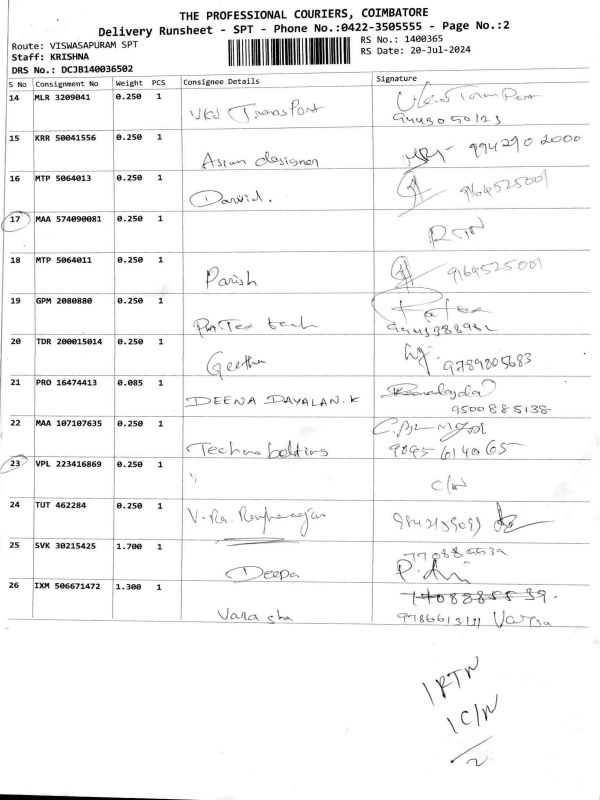 THE PROFESSIONAL COURIERS, COIMBATORE
Delivery Runsheet - SPT - Phone No.:0422-3505555 - Page No.:2
Route: VISWASAPURAM SPT
RS No.: 1400365
Staff: KRISHNA
RS Date: 20-Jul-2024
DRS No.: DCJB140036502
S No Consignment No Weight PCS Consignee Details Signature
14 MLR 3209041 0.250 1
VKV Transport
9443050123
15 KRR 50041556 0.250 1
Asian designer 9942902000
16 MTP 5064013 0.250 1
David. 9164525001
17 MAA 574090081 0.250 1
RTN
18 MTP 5064011 0.250 1
Parish 9164525001
19 GPM 2080880 0.250 1
tech
20 TDR 200015014 0.250 1
Geetha 9789205683
21 PRO 16474413 0.085 1
DEENA DAYALAN.K
9500885138
22 MAA 107107635 0.250 1
Techno beltings 9095614065
23 VPL 223416869 0.250 1
" C/N
24 TUT 462284 0.250 1
V.Ra.
25 SVK 30215425 1.700 1
Deepa
26 IXM 506671472 1.300 1
Varasha Varsa
1 RTN
1 C/N
2